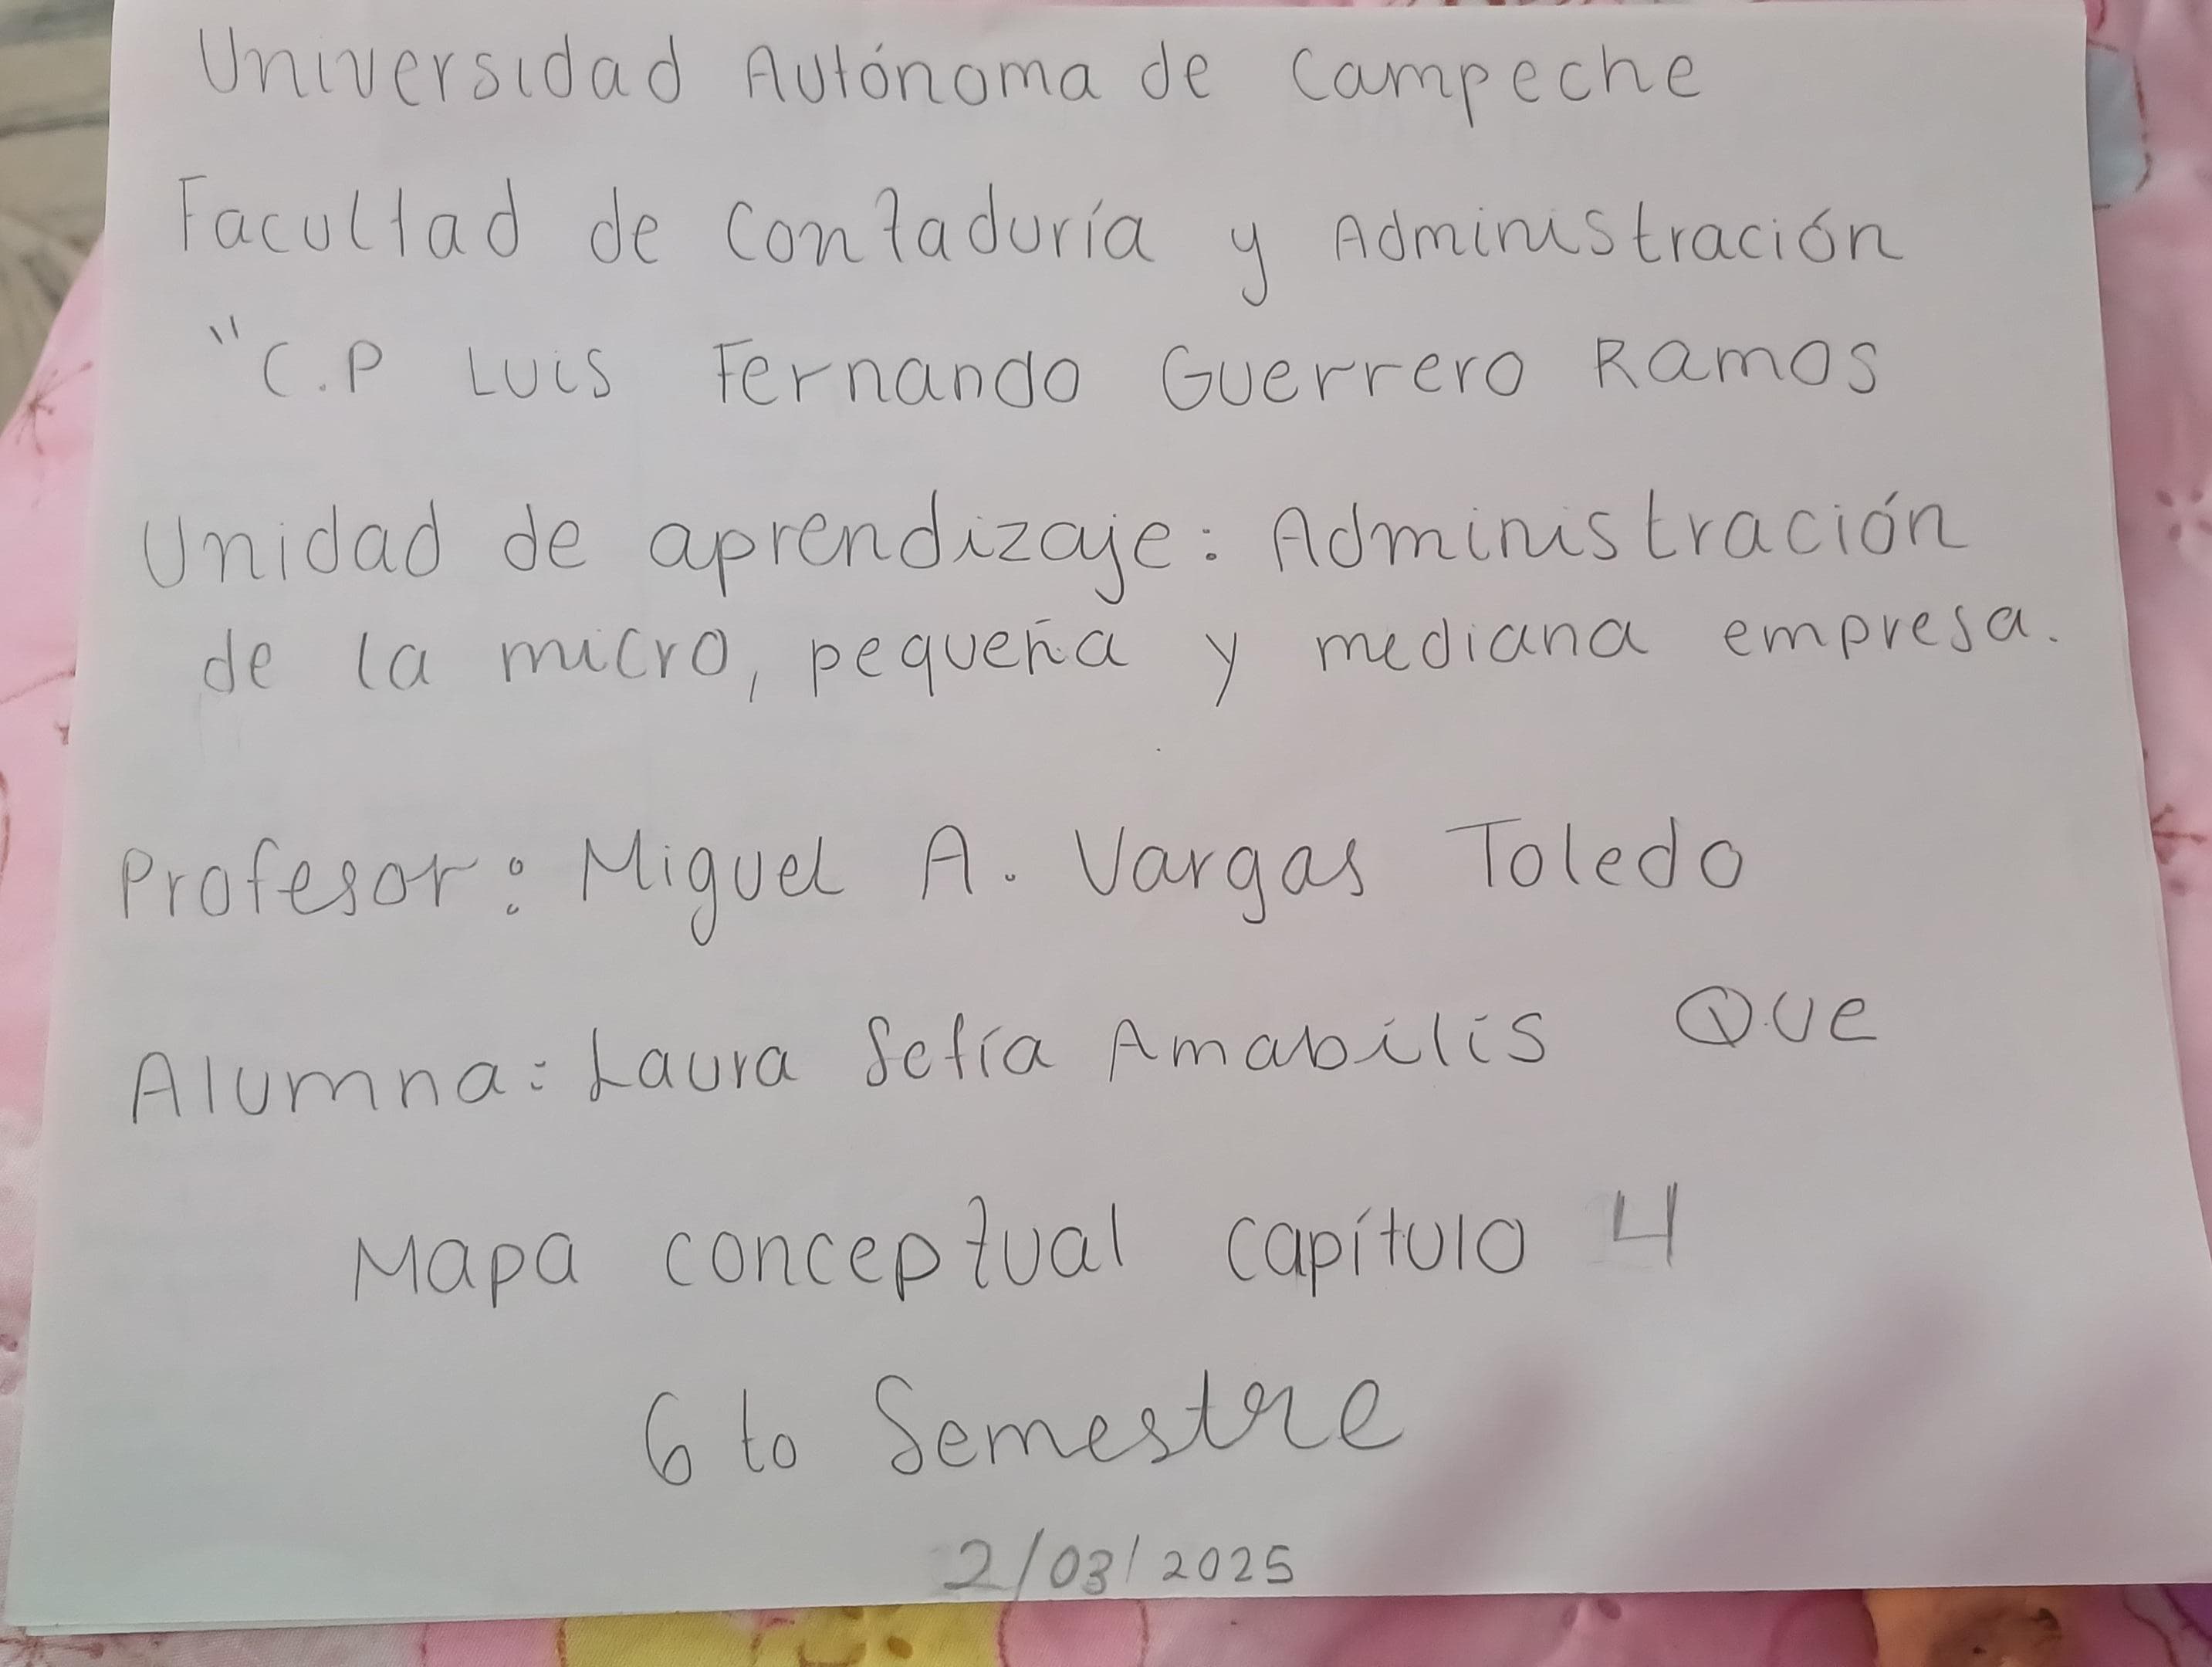 Universidad Autónoma de Campeche
Facultad de Contaduría y Administración
"C.P Luis Fernando Guerrero Ramos
Unidad de aprendizaje: Administración
de la micro, pequeña y mediana empresa.
Profesor: Miguel A. Vargas Toledo
Alumna: Laura Sofía Amabilis Que
Mapa conceptual capítulo 4
6 to Semestre
2/03/2025